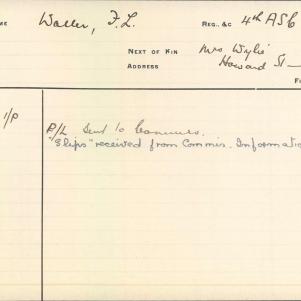 ME Waller, F. L. REG., &C 4th A S C
NEXT OF KIN Mrs Wylie
ADDRESS Howard St —
F
1/P
P/L Sent to
"Slips" received from Commis. Informatio